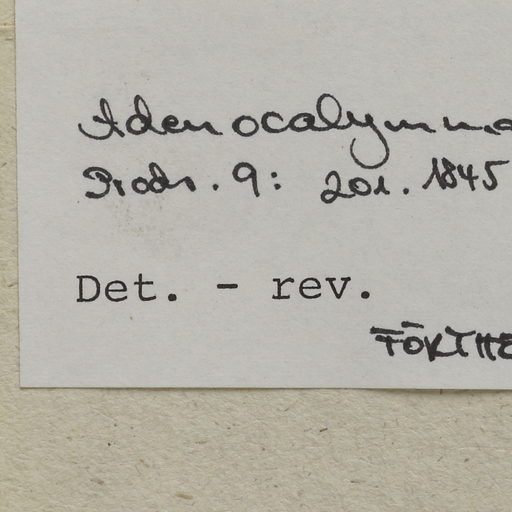 Adenocalymma
Prodr. 9: 201. 1845
Det. - rev.
FÖRTHE